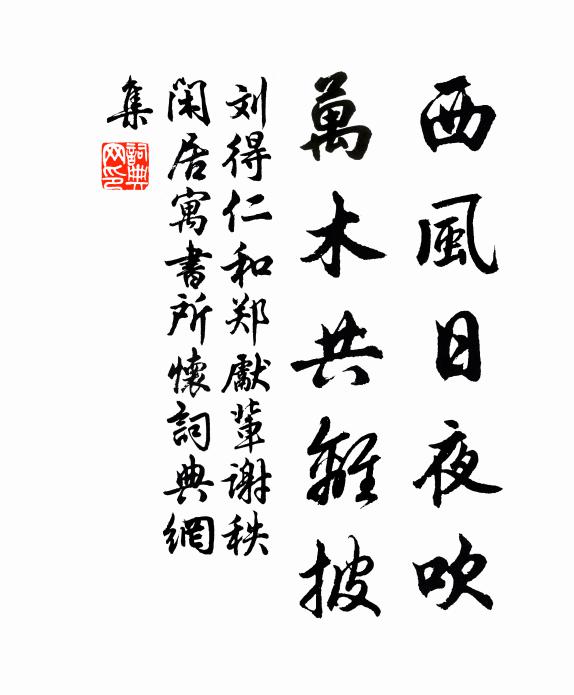 西風日夜吹
萬木共離披
刘得仁和郑獻輩謝秩
闲居寓書所懷詞典網
集
詞典
网印